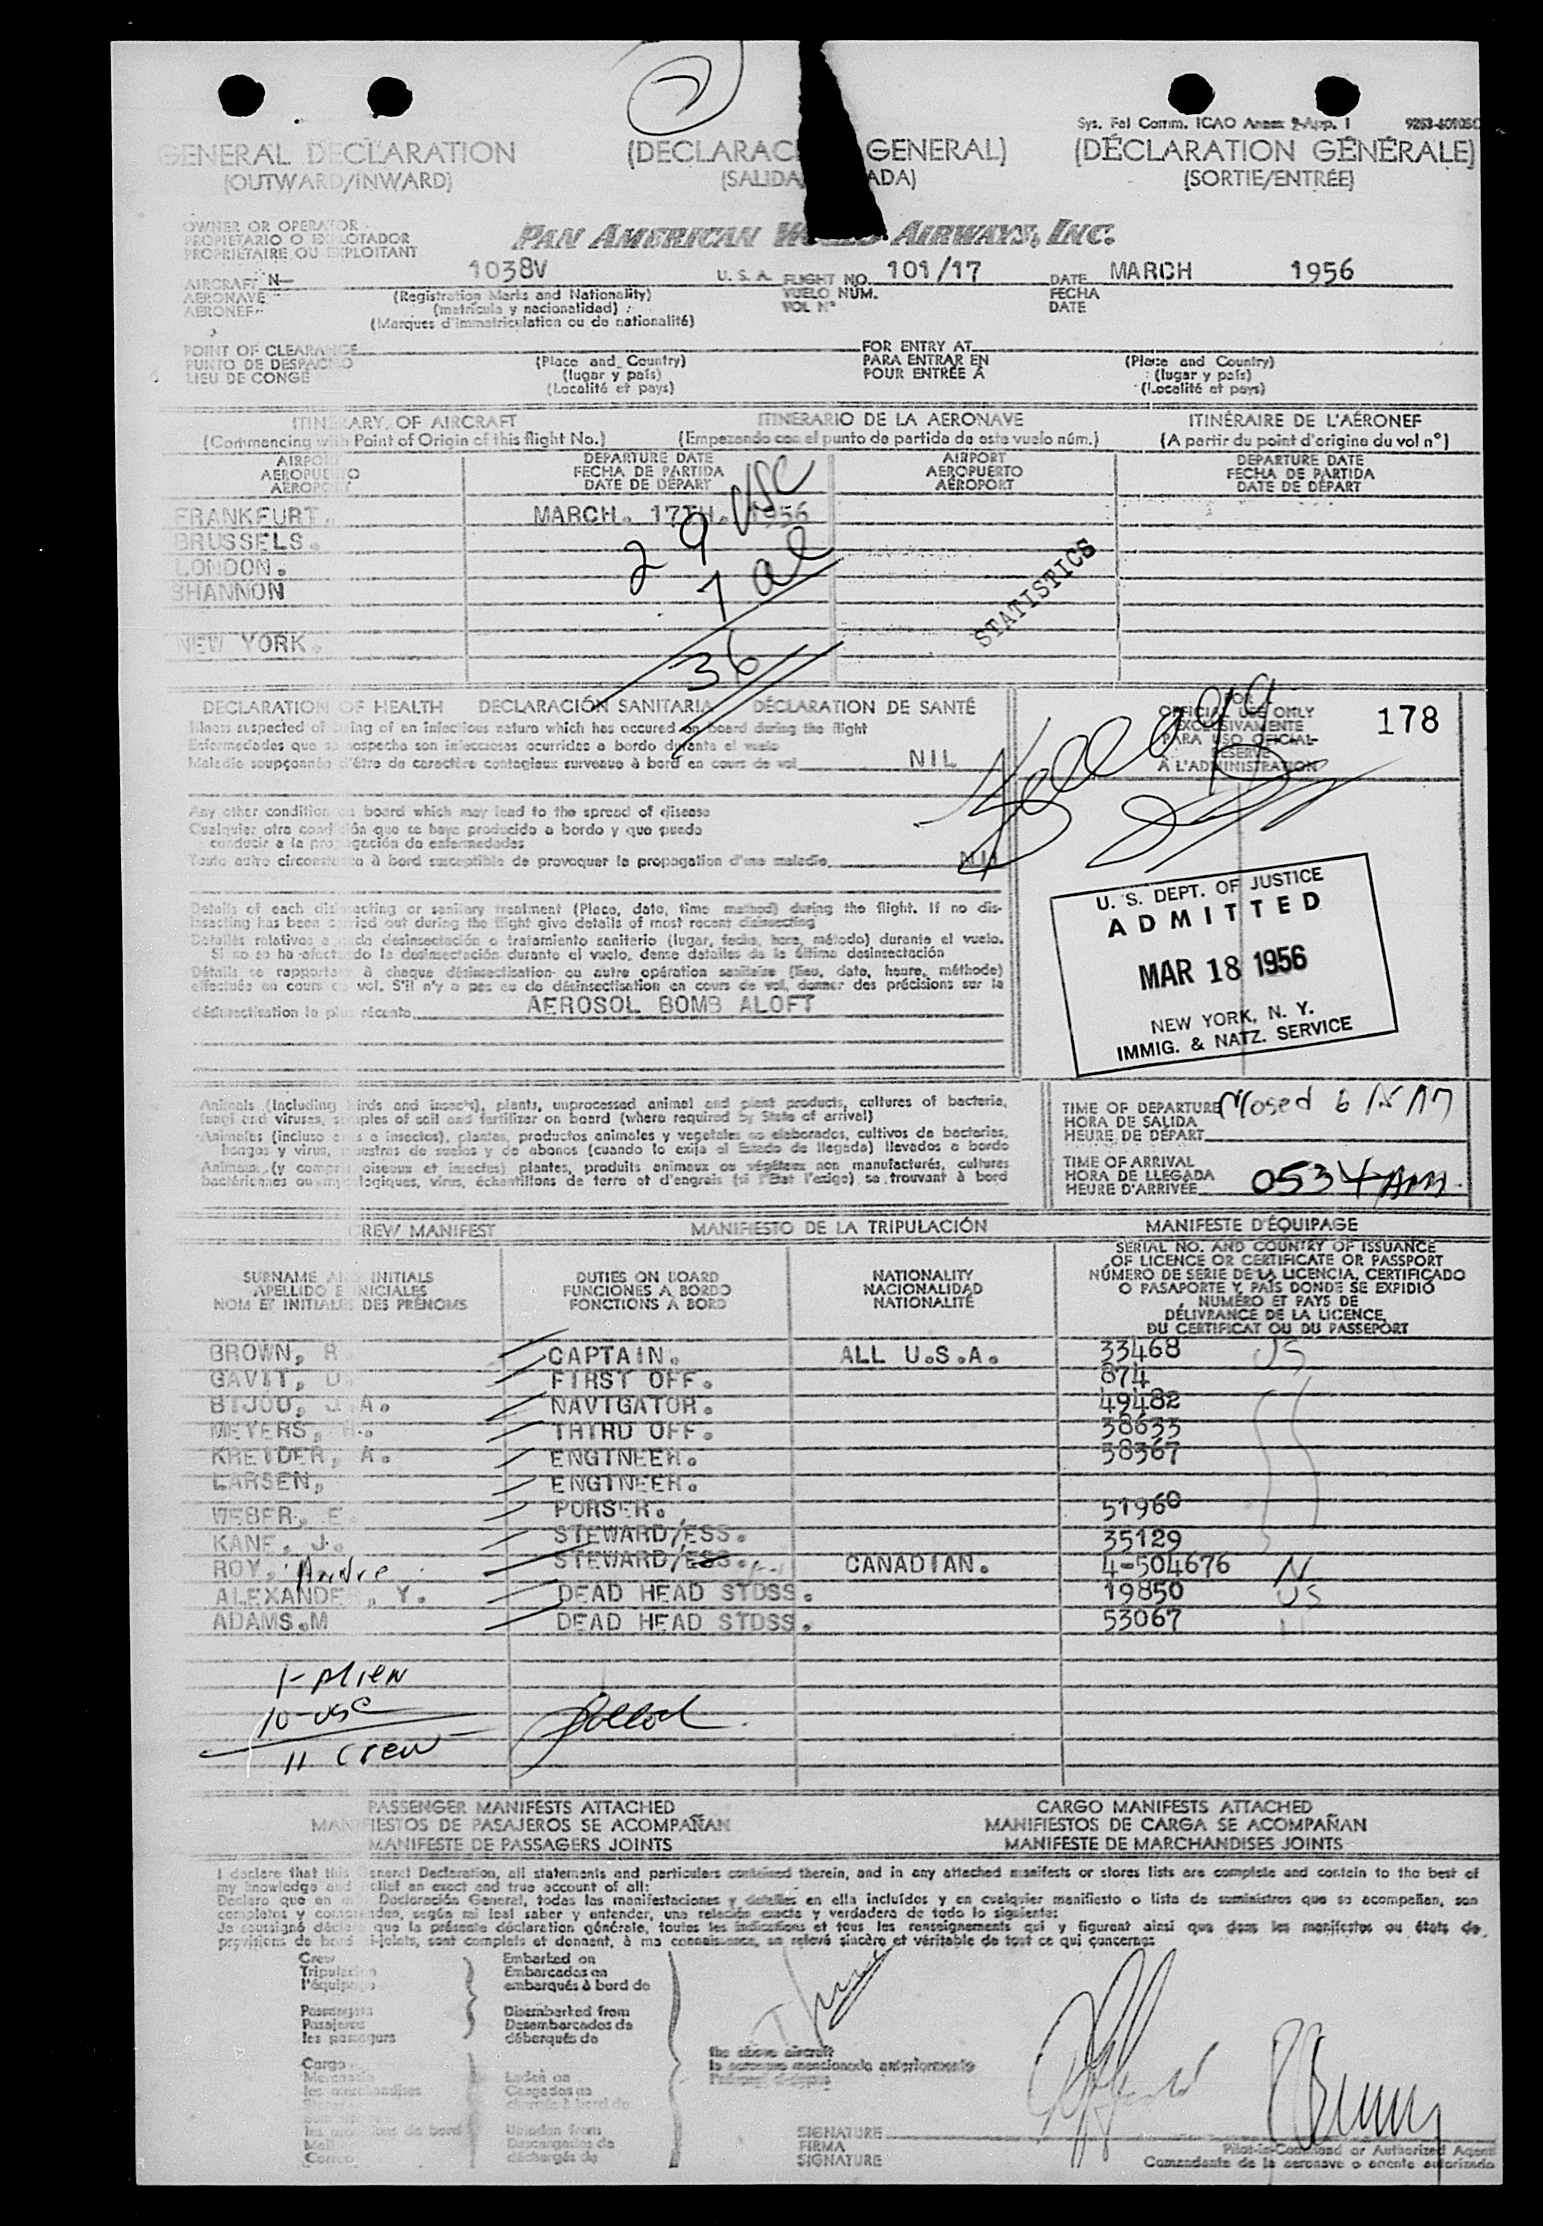 Sys. Fal Comm. ICAO Annex 9-App. 1
GENERAL DECLARATION (DECLARAC GENERAL) (DÉCLARATION GÉNÉRALE)
(OUTWARD/INWARD) (SALIDA ADA) (SORTIE/ENTRÉE)
OWNER OR OPERATOR
PROPIETARIO O EXPLOTADOR
PROPRIÉTAIRE OU EXPLOITANT
PAN AMERICAN WORLD AIRWAYS, INC.
AIRCRAFT N- 1038V U. S. A. FLIGHT NO. 101/17 DATE MARCH 1956
AERONAVE (Registration Marks and Nationality) VUELO NÚM. FECHA
AÉRONEF (matrícula y nacionalidad) VOL N° DATE
(Marques d'immatriculation ou de nationalité)
POINT OF CLEARANCE FOR ENTRY AT
PUNTO DE DESPACHO (Place and Country) PARA ENTRAR EN (Place and Country)
LIEU DE CONGÉ (lugar y país) POUR ENTRÉE À (lugar y país)
(Localité et pays) (Localité et pays)
ITINERARY OF AIRCRAFT ITINERARIO DE LA AERONAVE ITINÉRAIRE DE L'AÉRONEF
(Commencing with Point of Origin of this flight No.) (Empezando con el punto de partida de este vuelo núm.) (A partir du point d'origine du vol n°)
AIRPORT DEPARTURE DATE AIRPORT DEPARTURE DATE
AEROPUERTO FECHA DE PARTIDA AEROPUERTO FECHA DE PARTIDA
AÉROPORT DATE DE DÉPART AÉROPORT DATE DE DÉPART
FRANKFURT. MARCH. 17TH. 1956
BRUSSELS.
LONDON.
SHANNON
NEW YORK.
29 USC
7 al
36
STATISTICS
DECLARATION OF HEALTH DECLARACIÓN SANITARIA DÉCLARATION DE SANTÉ
Illness suspected of being of an infectious nature which has occured on board during the flight
Enfermedades que se sospecha son infecciosas ocurridas a bordo durante el vuelo
Maladie soupçonnée d'être de caractère contagieux survenue à bord en cours de vol NIL
FOR
OFFICIAL USE ONLY
EXCLUSIVAMENTE
PARA USO OFICIAL
RÉSERVÉ
À L'ADMINISTRATION
178
Any other condition on board which may lead to the spread of disease
Cualquier otra condición que se haya producido a bordo y que pueda
conducir a la propagación de enfermedades
Toute autre circonstance à bord susceptible de provoquer la propagation d'une maladie. NIL
Details of each disinsecting or sanitary treatment (Place, date, time method) during the flight. If no dis-
insecting has been carried out during the flight give details of most recent disinsecting
Detalles relativos a cada desinsectación o tratamiento sanitario (lugar, fecha, hora, método) durante el vuelo.
Si no se ha efectuado la desinsectación durante el vuelo, dense detalles de la última desinsectación
Détails se rapportant à chaque désinsectisation ou autre opération sanitaire (lieu, date, heure, méthode)
effectuée en cours de vol. S'il n'y a pas eu de désinsectisation en cours de vol, donner des précisions sur la
désinsectisation la plus récente AEROSOL BOMB ALOFT
U. S. DEPT. OF JUSTICE
ADMITTED
MAR 18 1956
NEW YORK, N. Y.
IMMIG. & NATZ. SERVICE
Animals (Including birds and insects), plants, unprocessed animal and plant products, cultures of bacteria,
fungi and viruses, samples of soil and fertilizer on board (where required by State of arrival)
Animales (incluso aves e insectos), plantas, productos animales y vegetales no elaborados, cultivos de bacterias,
hongos y virus, muestras de suelos y de abonos (cuando lo exija el Estado de llegada) llevados a bordo
Animaux (y compris oiseaux et insectes) plantes, produits animaux ou végétaux non manufacturés, cultures
bactériennes ou mycologiques, virus, échantillons de terre et d'engrais (si l'État l'exige) se trouvant à bord
TIME OF DEPARTURE Mosed 6 15 AM
HORA DE SALIDA
HEURE DE DÉPART
TIME OF ARRIVAL
HORA DE LLEGADA 0534 AM
HEURE D'ARRIVÉE
CREW MANIFEST MANIFIESTO DE LA TRIPULACIÓN MANIFESTE D'ÉQUIPAGE
SURNAME AND INITIALS DUTIES ON BOARD NATIONALITY
APELLIDO E INICIALES FUNCIONES A BORDO NACIONALIDAD
NOM ET INITIALES DES PRÉNOMS FONCTIONS À BORD NATIONALITÉ
SERIAL NO. AND COUNTRY OF ISSUANCE
OF LICENCE OR CERTIFICATE OR PASSPORT
NÚMERO DE SERIE DE LA LICENCIA, CERTIFICADO
O PASAPORTE Y PAÍS DONDE SE EXPIDIÓ
NUMÉRO ET PAYS DE
DÉLIVRANCE DE LA LICENCE,
DU CERTIFICAT OU DU PASSEPORT
BROWN, R CAPTAIN. ALL U.S.A. 33468 US
GAVIT, D FIRST OFF. 874
BIJOU, J.A. NAVIGATOR. 49482
MEYERS, H. THIRD OFF. 38633
KREIDER, A. ENGINEER. 38367
LARSEN, ENGINEER.
WEBER, E. PURSER. 51960
KANE, J. STEWARD/ESS. 35129
ROY, Andre STEWARD/ESS. CANADIAN. 4-504676 N
ALEXANDER, Y. DEAD HEAD STDSS. 19850 US
ADAMS.M DEAD HEAD STDSS. 53067 "
1-Alien
10-usc
11 Crew
PASSENGER MANIFESTS ATTACHED CARGO MANIFESTS ATTACHED
MANIFIESTOS DE PASAJEROS SE ACOMPAÑAN MANIFIESTOS DE CARGA SE ACOMPAÑAN
MANIFESTE DE PASSAGERS JOINTS MANIFESTE DE MARCHANDISES JOINTS
I declare that this General Declaration, all statements and particulars contained therein, and in any attached manifests or stores lists are complete and contain to the best of
my knowledge and belief an exact and true account of all:
Declaro que en esta Declaración General, todas las manifestaciones y detalles en ella incluídos y en cualquier manifiesto o lista de suministros que se acompañan, son
completos y comprenden, según mi leal saber y entender, una relación exacta y verdadera de todo lo siguiente:
Je soussigné déclare que la présente déclaration générale, toutes les indications et tous les renseignements qui y figurent ainsi que dans les manifestes ou états de
provisions de bord ci-joints, sont complets et donnent, à ma connaissance, un relevé sincère et véritable de tout ce qui concerne:
Crew Embarked on
Tripulación Embarcados en
l'équipage embarqués à bord de
Passengers Disembarked from
Pasajeros Desembarcados de
les passagers débarqués de
the above aircraft
la aeronave mencionada anteriormente
Cargo
les marchandises
Laden on
Cargados en
chargés à bord de
Unladen from
Descargados de
déchargés de
Correo
SIGNATURE
FIRMA Pilot-in-Command or Authorized Agent
SIGNATURE Comandante de la aeronave o agente autorizado